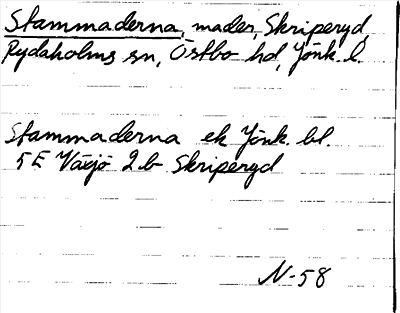 Stammaderna, mader, Skriperyd,
Rydaholms sn, Östbo hd, Jönk. l.
Stammaderna ek Jönk. bl.
5 E Växjö 2 b Skriperyd
N-58